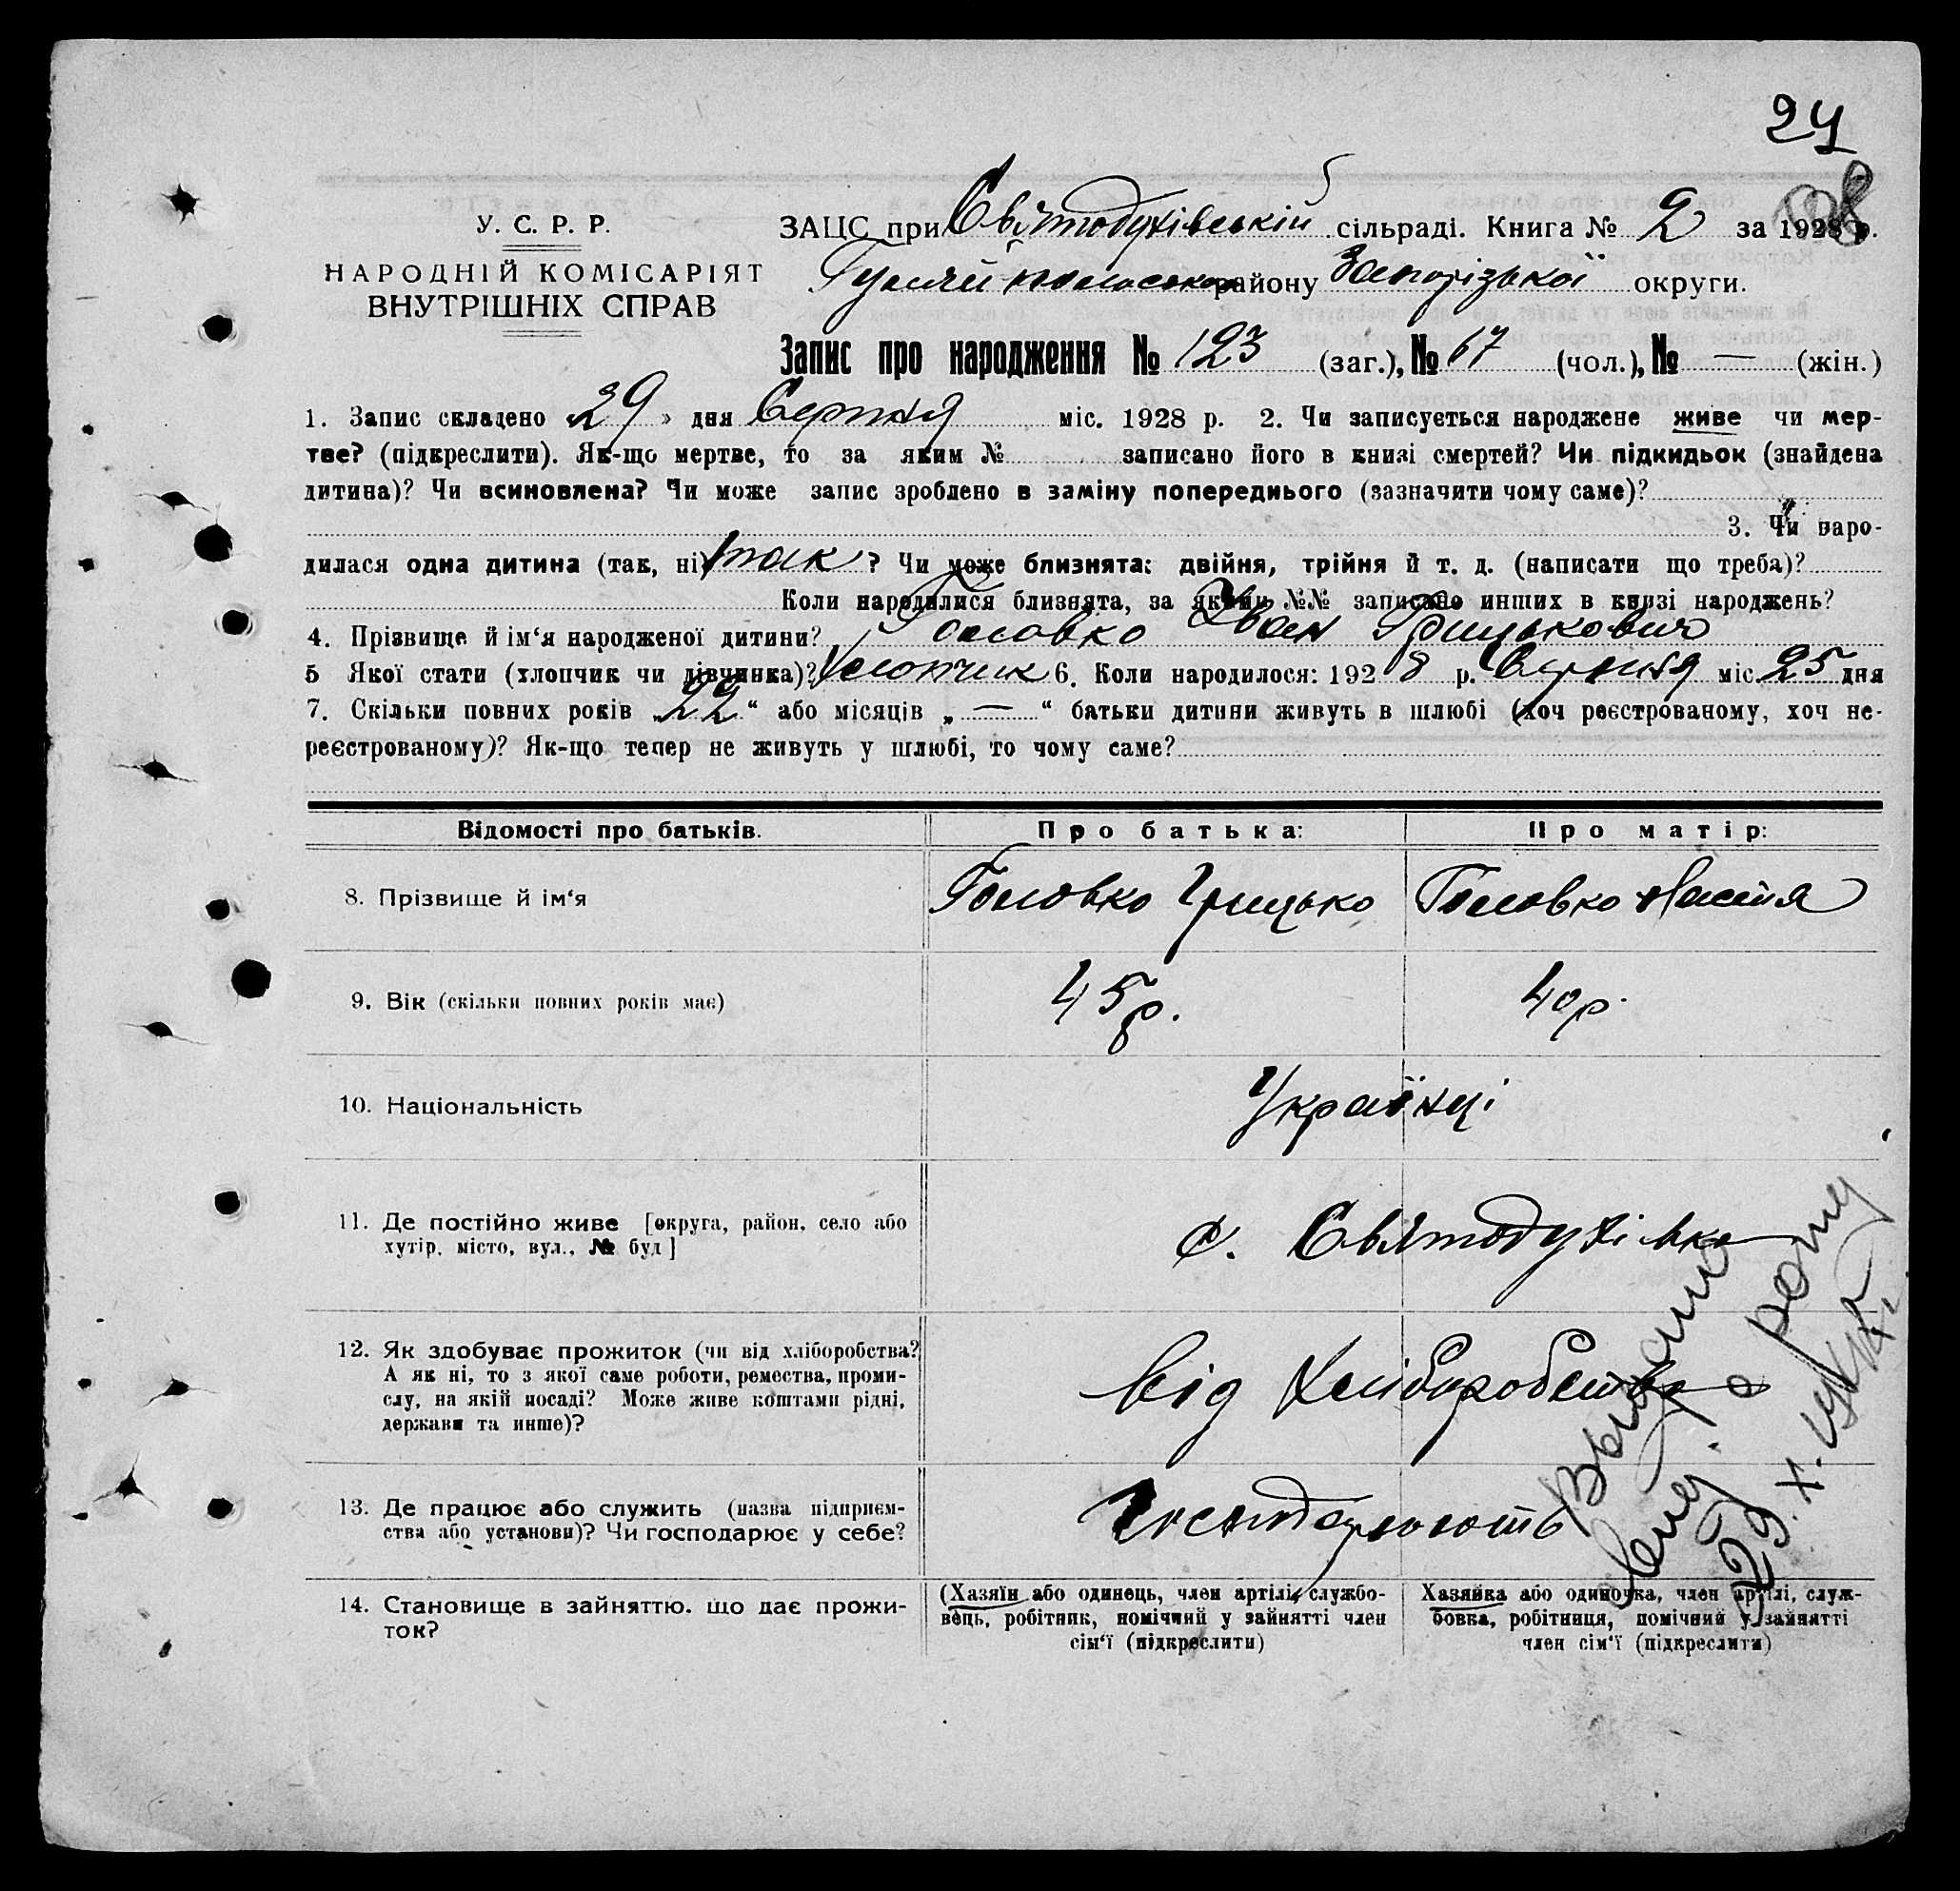 24
198
У. С. Р. Р.
НАРОДНІЙ КОМІСАРІЯТ
ВНУТРІШНІХ СПРАВ
ЗАЦС при Святодухівській сільраді. Книга № 2 за 1928 р.
Гуляй-польського району Запорізької округи.
Запис про народження № 123 (заг.), № 67 (чол.), № — (жін.)
1. Запис складено „29" дня Серпня міс. 1928 р. 2. Чи записується народжене живе чи мер-
тве? (підкреслити). Як-що мертве, то за яким № записано його в книзі смертей? Чи підкидьок (знайдена
дитина)? Чи всиновлена? Чи може запис зроблено в заміну попереднього (зазначити чому саме)?
3. Чи наро-
дилася одна дитина (так, ні) так? Чи може близнята: двійня, трійня й т. д. (написати що треба)?
Коли народилися близнята, за якими №№ записано инших в книзі народжень?
4. Прізвище й ім'я народженої дитини? Головко Іван Грицькович
5 Якої стати (хлопчик чи дівчинка)? Хлопчик 6. Коли народилося: 1928 р. Серпня міс. 25 дня
7. Скільки повних років „22" або місяців „—" батьки дитини живуть в шлюбі (хоч реєстрованому, хоч не-
реєстрованому)? Як-що тепер не живуть у шлюбі, то чому саме?
Відомості про батьків. Про батька: Про матір:
8. Прізвище й ім'я Головко Грицько Головко Настя
9. Вік (скільки повних років має) 45 р. 40 р.
10. Національність Українці
11. Де постійно живе [округа, район, село або
хутір, місто, вул., № буд] с. Святодухівка
12. Як здобуває прожиток (чи від хліборобства?
А як ні, то з якої саме роботи, ремества, проми-
слу, на якій посаді? Може живе коштами рідні,
держави та инше)? від Хліборобства
13. Де працює або служить (назва підприєм-
ства або установи)? Чи господарює у себе? Господарюють
14. Становище в зайняттю. що дає прожи-
ток?
(Хазяїн або одинець, член артілі, службо-
вець, робітник, помічний у зайнятті член
сім'ї (підкреслити)
Хазяйка або одиночка, член артілі, служ-
бовка, робітниця, помічний у зайнятті
член сім'ї (підкреслити)
Выдано
29. X.